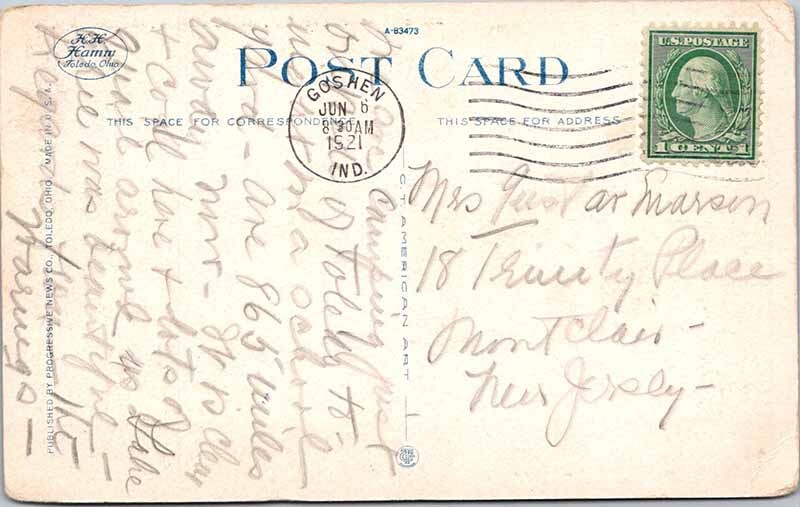 A-83473
H.H. Hamm
Toledo, Ohio
POST CARD
GOSHEN
JUN 6
8 30 AM
1921
IND.
U.S. POSTAGE
1 CENT 1
THIS SPACE FOR CORRESPONDENCE
THIS SPACE FOR ADDRESS
Mrs Gustav Marson
18 Trinity Place
Montclair -
New Jersey -
camping just
of Toledo to
in a school
yard - are 865 miles
away now - It is clear
+ cool here + lots of
us Lake
was beautiful -
PUBLISHED BY PROGRESSIVE NEWS CO., TOLEDO, OHIO. MADE IN U.S.A.
C.T. AMERICAN ART